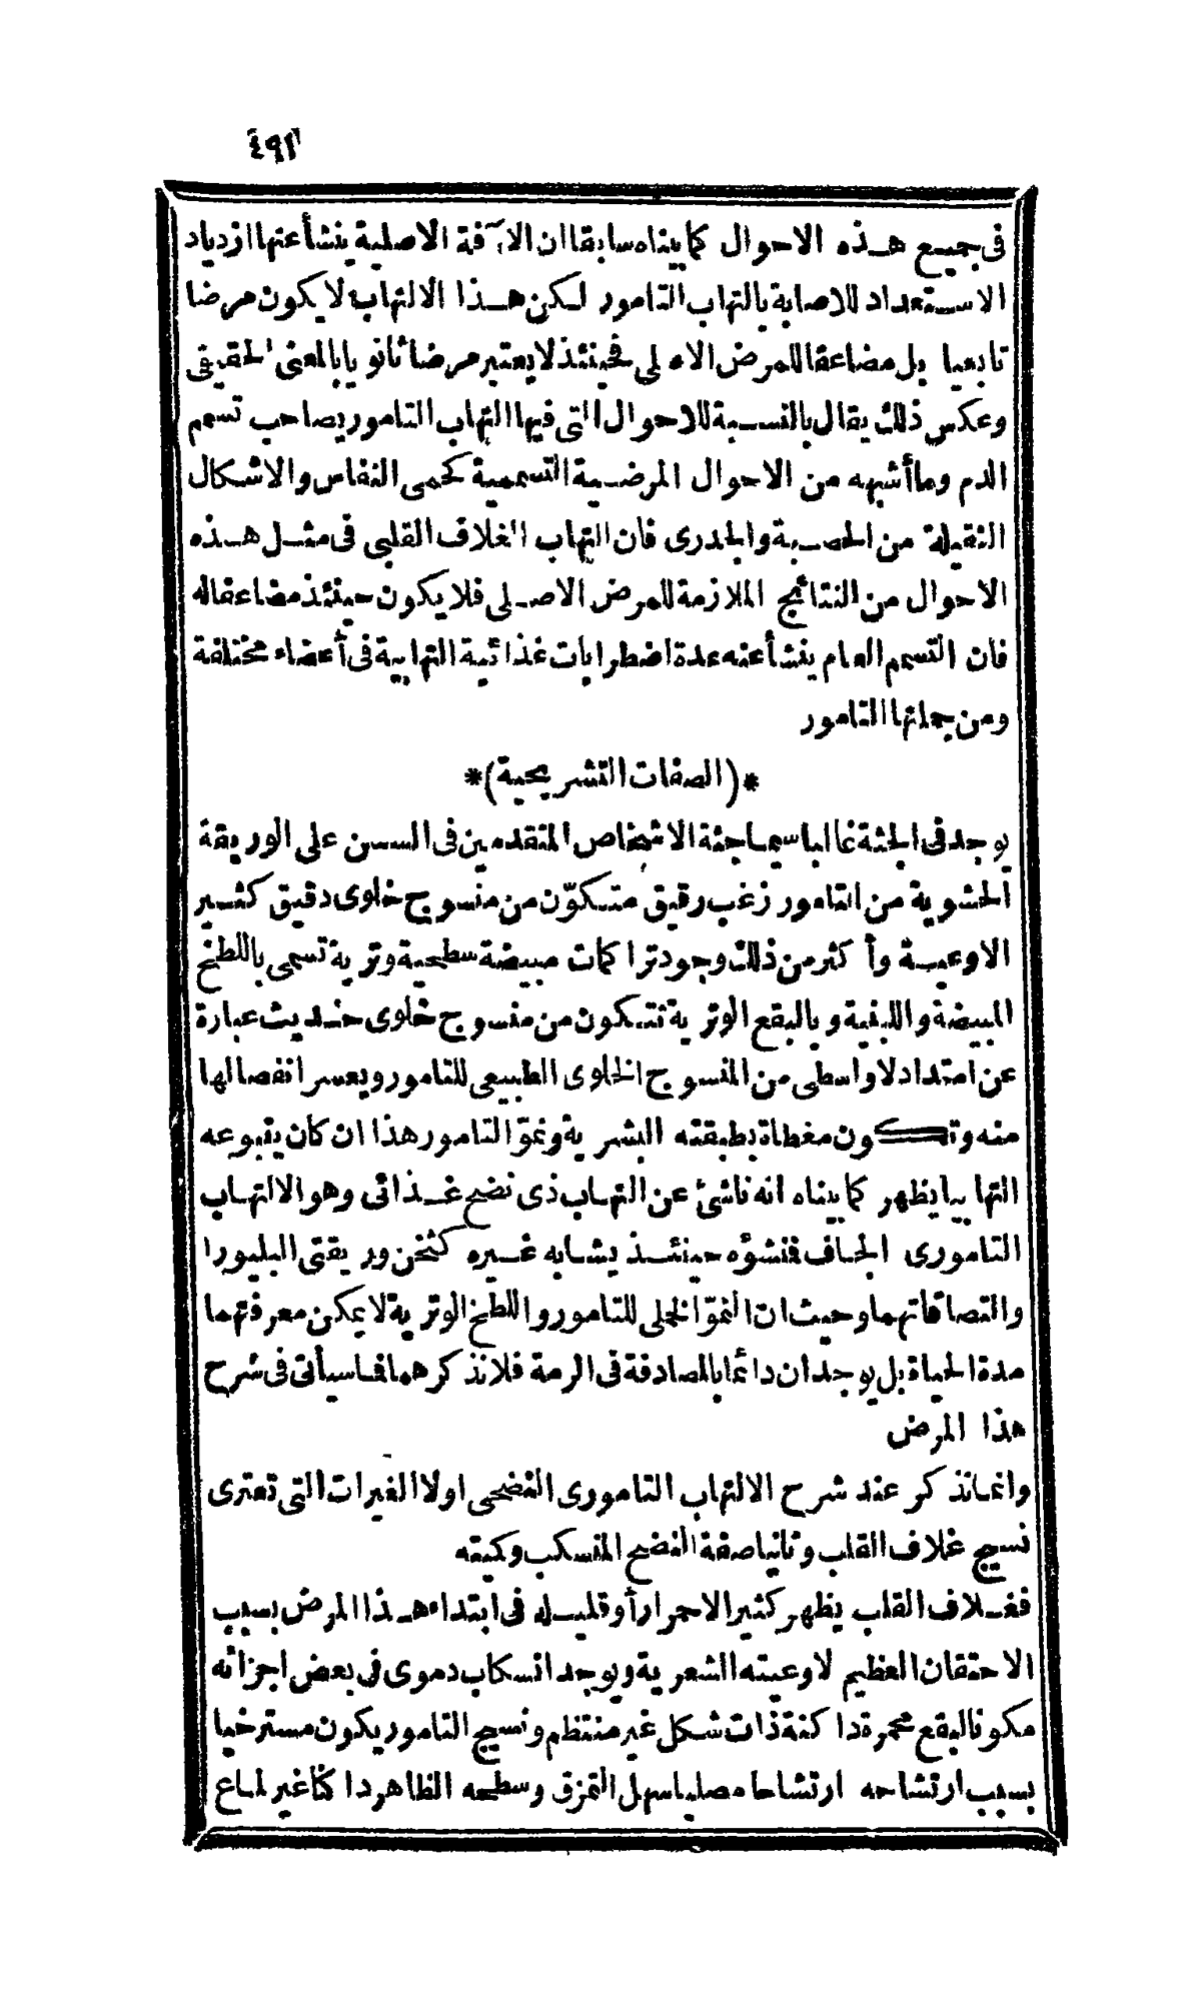 ٤٩٣
فى جميع هذه الاحوال كما بيناه سابقا ان الآفة الاصلية ينشأ عنها ازدياد
الاستعداد للاصابة بالتهاب التامور لكن هذا الالتهاب لا يكون مرضا
تابعيا بل مضاعفا للمرض الاصلى فحينئذ لا يعتبر مرضا ثانويا بالمعنى الحقيقى
وعكس ذلك يقال بالنسبة للاحوال التى فيها التهاب التامور يصاحب تسمم
الدم وما أشبهه من الاحوال المرضية التسممية كحمى النفاس والاشكال
الثقيلة من الحصبة والجدرى فان التهاب الغلاف القلبى فى مثل هذه
الاحوال من النتائج الملازمة للمرض الاصلى فلا يكون حينئذ مضاعفا له
فان التسمم العام ينشأ عنه عدة اضطرابات غذائية التهابية فى أعضاء مختلفة
ومن جملتها التامور
*(الصفات التشريحية)*
يوجد فى الجثة غالبا سيما جثة الاشخاص المتقدمين فى السن على الوريقة
الحشوية من التامور زغب رقيق متكوّن من منسوج خلوى دقيق كثير
الاوعية وأكثر من ذلك وجود تراكمات مبيضة سطحية وترية تسمى باللطخ
المبيضة واللبنية وبالبقع الوترية تتكون من منسوج خلوى حديث عبارة
عن امتداد لا واسطى من المنسوج الخلوى الطبيعى للتامور ويعسر انفصالها
منه وتكون مغطاة بطبقته البشرية ونموّ التامور هذا ان كان ينبوعه
التهابيا يظهر كما بيناه انه ناشئ عن التهاب ذى نضح غذائى وهو الالتهاب
التامورى الجاف فنشؤه حينئذ يشابه غيره كثخن وريقتى البليورا
والتصاقاتهما وحيث ان النموّ الخلى للتامور واللطخ الوترية لا يمكن معرفتهما
مدة الحياة بل يوجدان دائما بالمصادفة فى الرمة فلا نذكرهما فيما سيأتى فى شرح
هذا المرض
وانما نذكر عند شرح الالتهاب التامورى النضحى اولا الغيرات التى تعترى
نسيج غلاف القلب وثانيا صفة النضح المنسكب وكميته
فغلاف القلب يظهر كثير الاحمرار أو قليله فى ابتداء هذا المرض بسبب
الاحتقان العظيم لاوعيته الشعرية ويوجد انسكاب دموى فى بعض اجزائه
مكونا لبقع محمرة داكنة ذات شكل غير منتظم ونسيج التامور يكون مسترخيا
بسبب ارتشاحه ارتشاحا مصليا سهل التمزق وسطحه الظاهر داكنا غير لماع